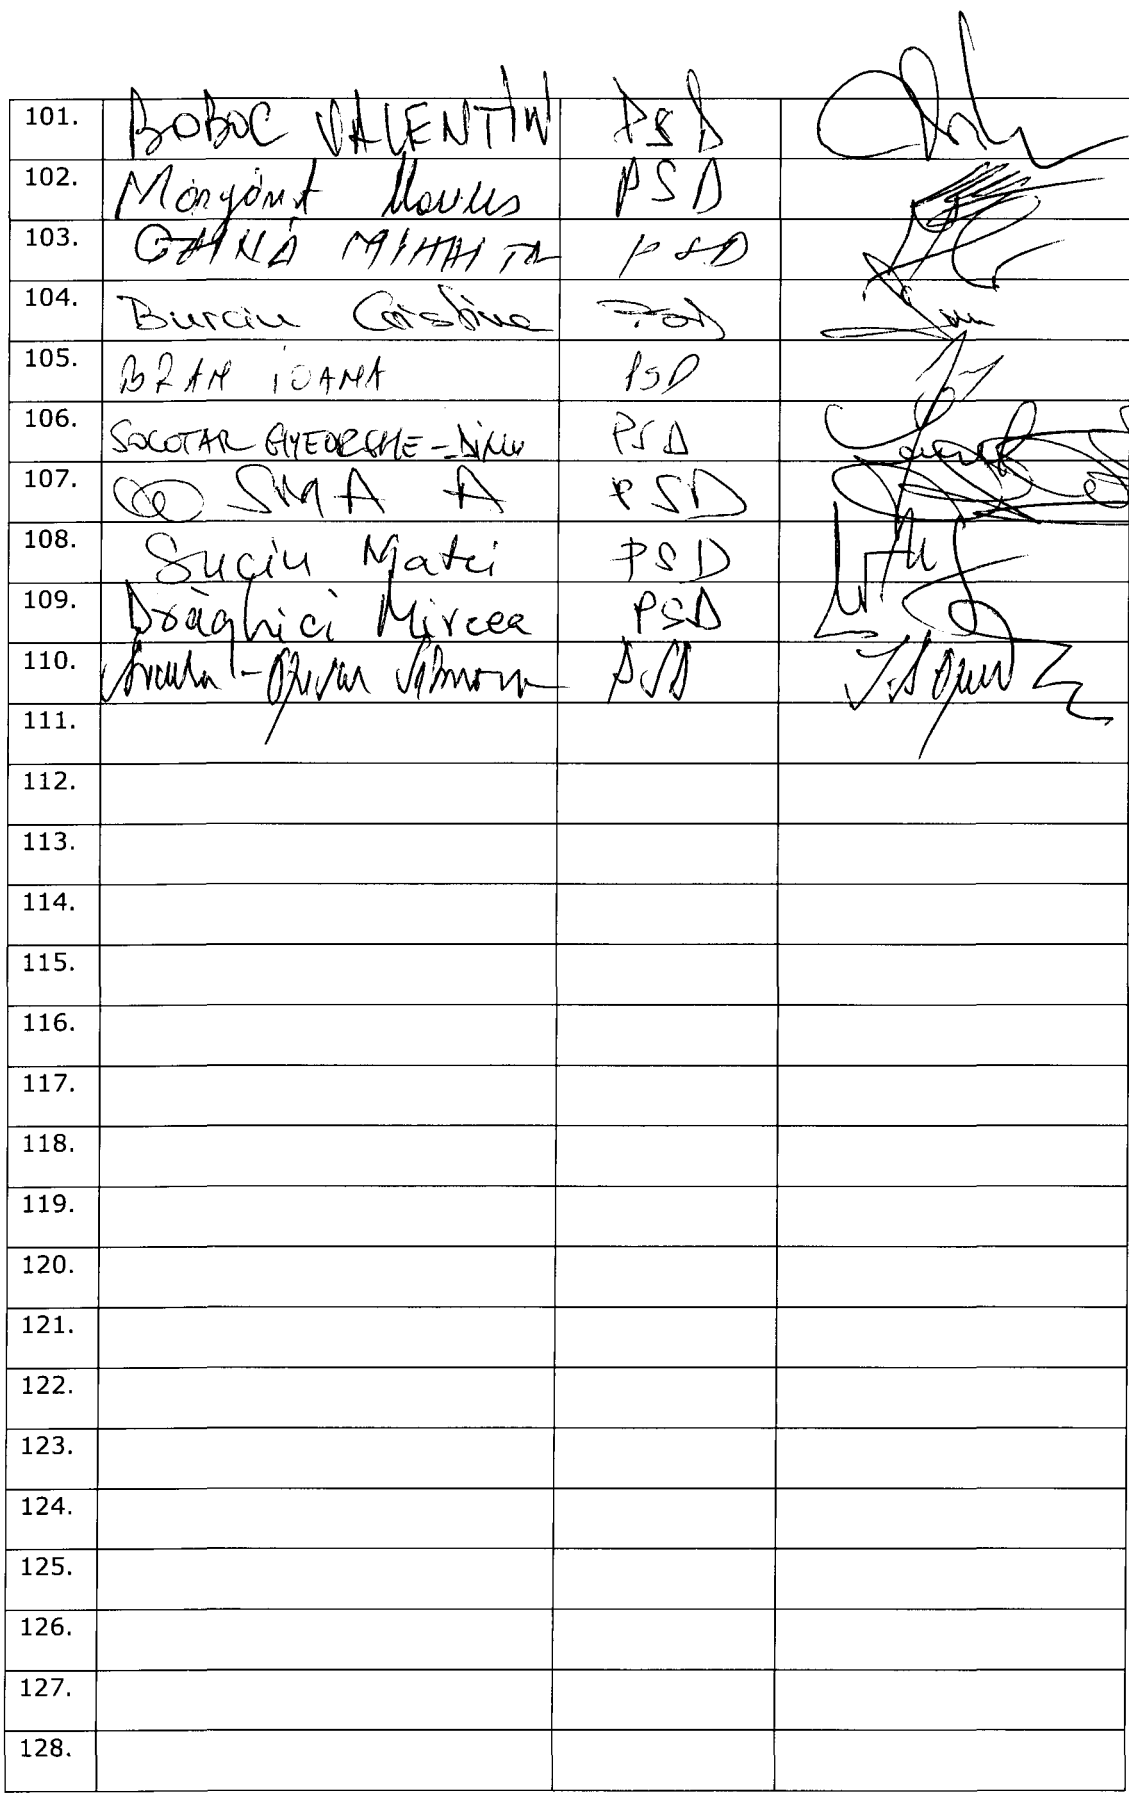 101. BOBOC VALENTIN PSD
102. Mărgărit Marius PSD
103. GAINĂ MIHĂIȚĂ PSD
104. Burciu Cristina PSD
105. BRAN IOANA PSD
106. SOCOTAR GHEORGHE-DINU PSD
107. COSMA A PSD
108. Suciu Matei PSD
109. Drăghici Mircea PSD
110. PSD
111.
112.
113.
114.
115.
116.
117.
118.
119.
120.
121.
122.
123.
124.
125.
126.
127.
128.